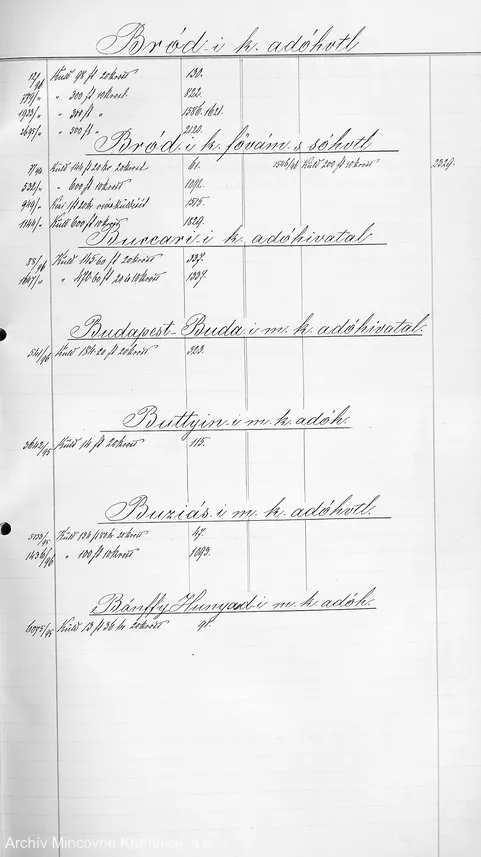 Bród-i k. adóhvtl
12/96 Küld 98 ft 20krost 130.
179/„ „ 300 ft 10krost. 822.
1923/„ „ 300 ft „ 1586. 1621.
2695/„ „ 500 ft „ 2120.
Bród-i k. fővám s sóhvtl
7/96 Küld 144 ft 20 kr 20krost 61. 1546/96 Küld 200 ft 10krost 2229.
532/„ „ 600 ft 10krost 1092.
949/„ 1 ft 20 kr 1515.
1144/„ Küld 600 ft 10krost 1829.
Buccari-i k. adóhivatal
88/96 Küld 145 60 ft 20krost 337.
1647/„ „ 472·60 ft 20 és 10krost 1337.
Budapest-Buda-i m. k. adóhivatal.
541/96 Küld 184·20 ft 20krost 323.
Buttyin-i m. k. adóh.
3642/95 Küld 14 ft 20krost 115.
Buziás-i m. k. adóhvtl.
5733/95 Küld 134 ft 80 kr 20krost 47.
1436/96 „ 100 ft 10krost 1093.
Bánffy Hunyad-i m. k. adóh.
6075/95 Küld 13 ft 36 kr 20krost 91.
Archív Mincovne Kremnica, š.p.